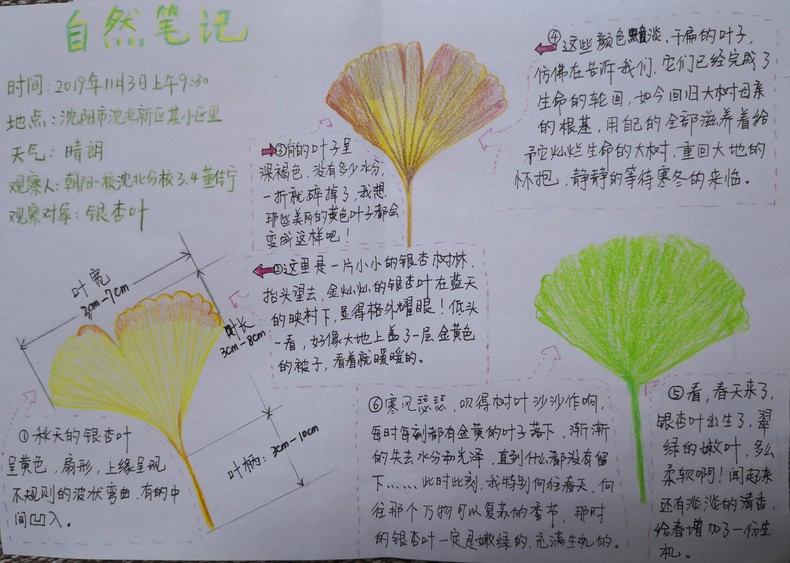 自然笔记
时间：2019年11月3日上午9:30
地点：沈阳市沈北新区某小区里
天气：晴朗
观察人：朝阳一校沈北分校3.4董佳宁
观察对象：银杏叶
叶宽
3cm-7cm
叶长
3cm-8cm
叶柄：3cm-10cm
①秋天的银杏叶
呈黄色，扇形，上缘呈现
不规则的波状弯曲，有的中
间凹入。
②这里是一片小小的银杏树林，
抬头望去，金灿灿的银杏叶在蓝天
的映村下，显得格外耀眼！低头
一看，好像大地上盖了一层金黄色
的被子，看着就暖暖的。
③有的叶子呈
深褐色，没有多少水分，
一折就碎掉了，我想，
那些美丽的黄色叶子都会
变成这样吧！
④这些颜色黯淡，干扁的叶子，
仿佛在告诉我们，它们已经完成了
生命的轮回，如今回归大树母亲
的根基，用自己的全部滋养着给
予它灿烂生命的大树，重回大地的
怀抱，静静的等待寒冬的来临。
⑤看，春天来了，
银杏叶出生了，翠
绿的嫩叶，多么
柔软啊！闻起来
还有淡淡的清香，
给春增加了一份生
机。
⑥寒风瑟瑟，吹得树叶沙沙作响，
每时每刻都有金黄的叶子落下，渐渐
的失去水分和光泽，直到什么都没有留
下……此时此刻，我特别向往春天，向
往那个万物可以复苏的季节，那时
的银杏叶一定是嫩绿的，充满生机的。